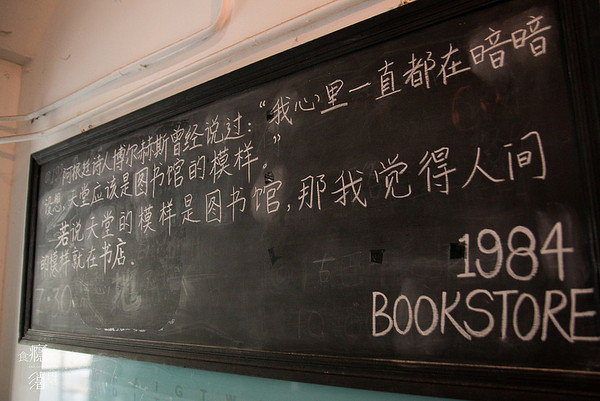 阿根廷诗人博尔赫斯曾经说过：“我心里一直都在暗暗
设想，天堂应该是图书馆的模样。”
若说天堂的模样是图书馆，那我觉得人间
的模样就在书店.
1984
BOOKSTORE